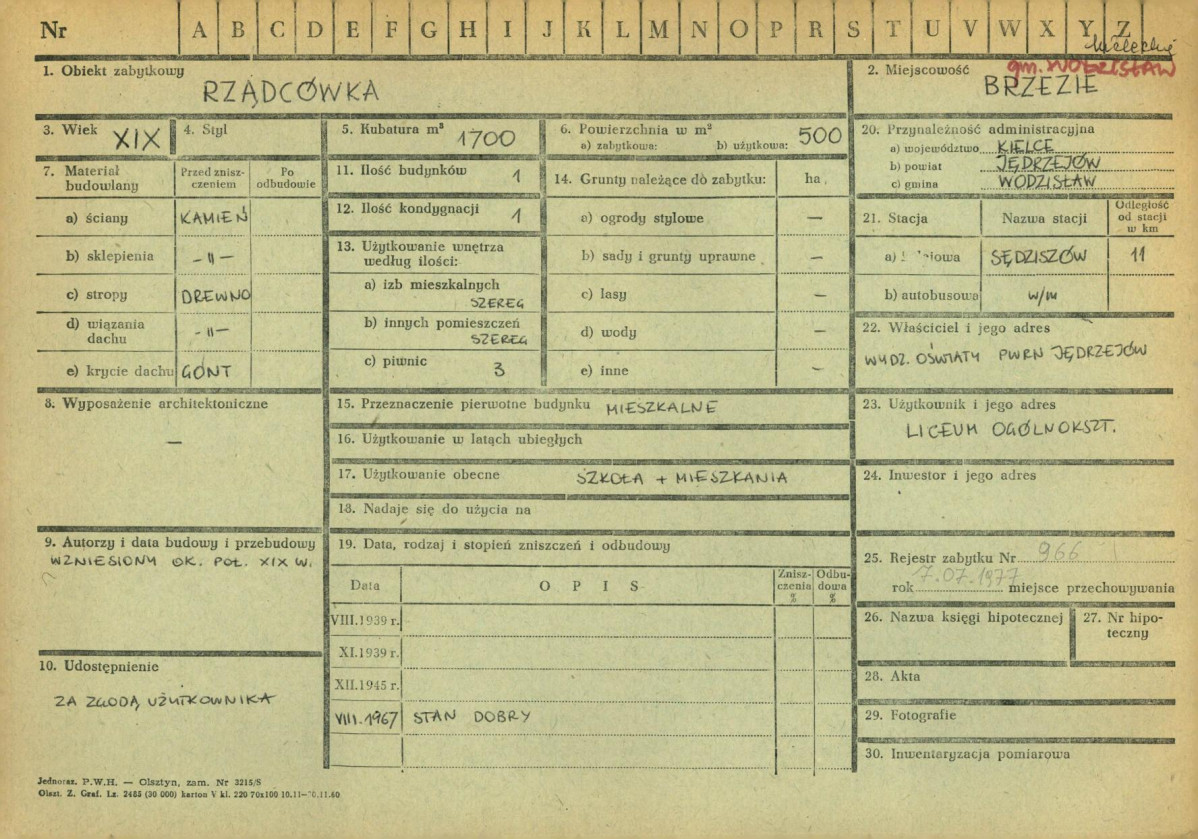 Nr A B C D E F G H I J K L M N O P R S T U V W X Y Z
kieleckie
gm. WODZISŁAW
1. Obiekt zabytkowy
RZĄDCÓWKA
2. Miejscowość
BRZEZIE
3. Wiek XIX
4. Styl
5. Kubatura m³ 1700
6. Powierzchnia w m²
a) zabytkowa: b) użytkowa: 500
20. Przynależność administracyjna
a) województwo KIELCE
b) powiat JĘDRZEJÓW
c) gmina WODZISŁAW
7. Materiał budowlany
Przed zniszczeniem
Po odbudowie
a) ściany KAMIEŃ
b) sklepienia -"-
c) stropy DREWNO
d) wiązania dachu -"-
e) krycie dachu GONT
11. Ilość budynków 1
12. Ilość kondygnacji 1
13. Użytkowanie wnętrza
według ilości:
a) izb mieszkalnych
SZEREG
b) innych pomieszczeń
SZEREG
c) piwnic 3
14. Grunty należące do zabytku: ha
a) ogrody stylowe —
b) sady i grunty uprawne —
c) lasy —
d) wody —
e) inne —
21. Stacja
Nazwa stacji
Odległość
od stacji
w km
a) SĘDZISZÓW 11
b) autobusowa w/m
22. Właściciel i jego adres
WYDZ. OŚWIATY PWRN JĘDRZEJÓW
8. Wyposażenie architektoniczne
—
15. Przeznaczenie pierwotne budynku MIESZKALNE
16. Użytkowanie w latach ubiegłych
17. Użytkowanie obecne SZKOŁA + MIESZKANIA
18. Nadaje się do użycia na
23. Użytkownik i jego adres
LICEUM OGÓLNOKSZT.
24. Inwestor i jego adres
9. Autorzy i data budowy i przebudowy
WZNIESIONY OK. POŁ. XIX W.
10. Udostępnienie
ZA ZGODĄ UŻYTKOWNIKA
19. Data, rodzaj i stopień zniszczeń i odbudowy
Data
OPIS
Zniszczenia %
Odbudowa %
VIII.1939 r.
XI.1939 r.
XII.1945 r.
VIII.1967 STAN DOBRY
25. Rejestr zabytku Nr 966
rok 7.07.1977 miejsce przechowywania
26. Nazwa księgi hipotecznej
27. Nr hipoteczny
28. Akta
29. Fotografie
30. Inwentaryzacja pomiarowa
Jednoraz. P.W.H. — Olsztyn, zam. Nr 3215/S
Olszt. Z. Graf. Lz. 2485 (30 000) karton V kl. 220 70x100